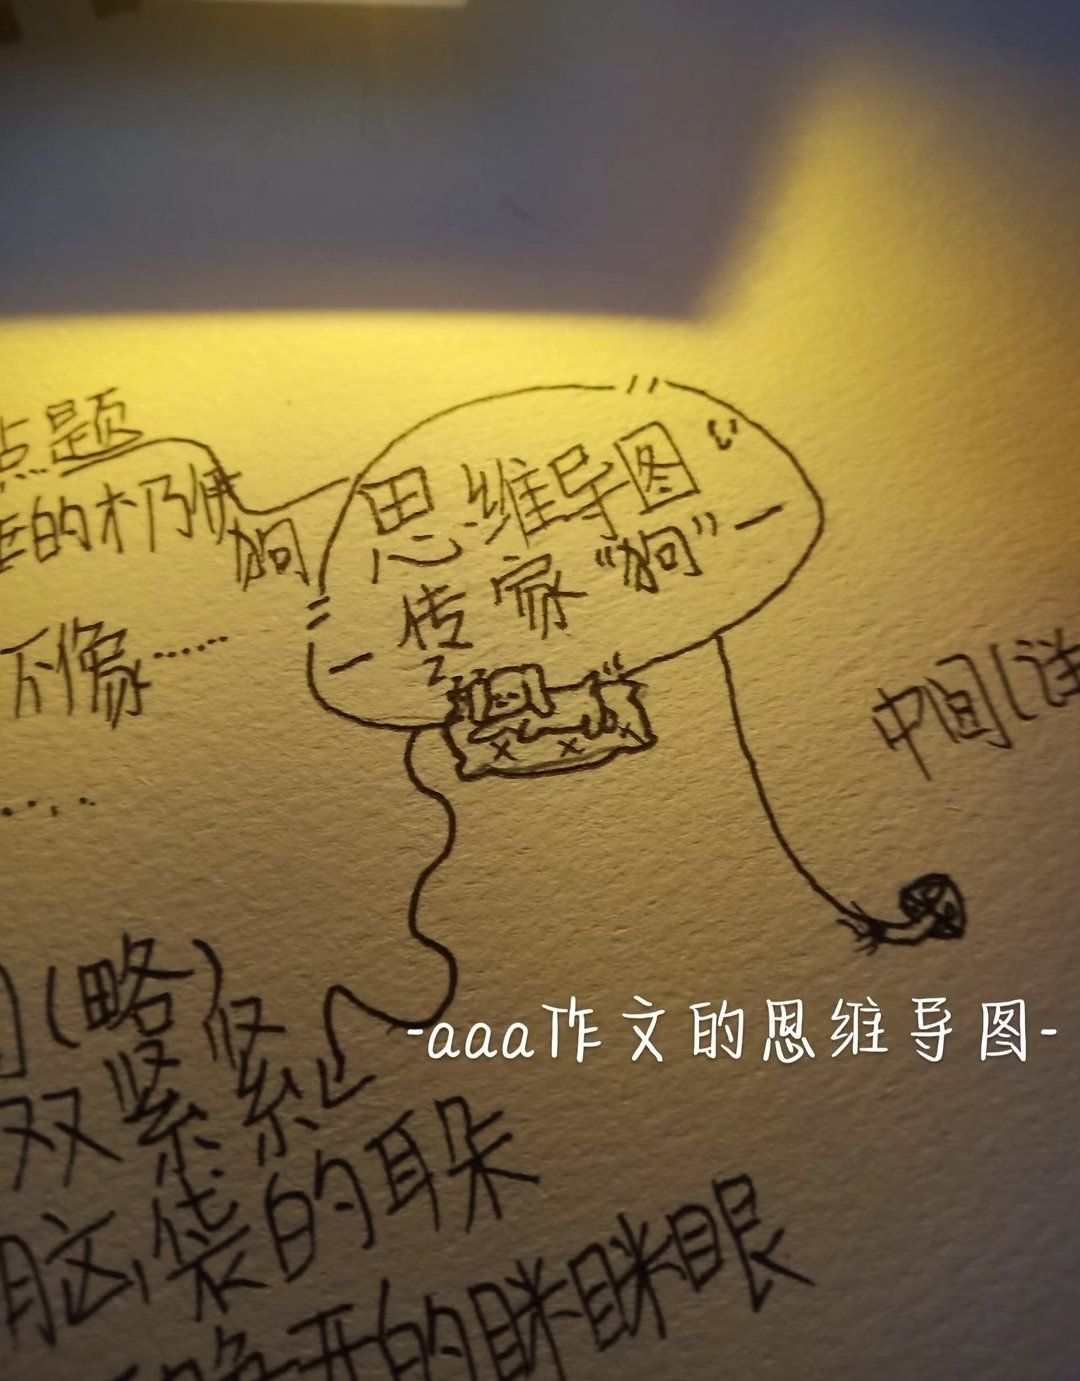 点题
的奶傀
狗
思维导图
传家“狗”
不像……
中间(详
(略)
双紧紧
脑袋的耳朵
开的眯眯眼
-aaa作文的思维导图-